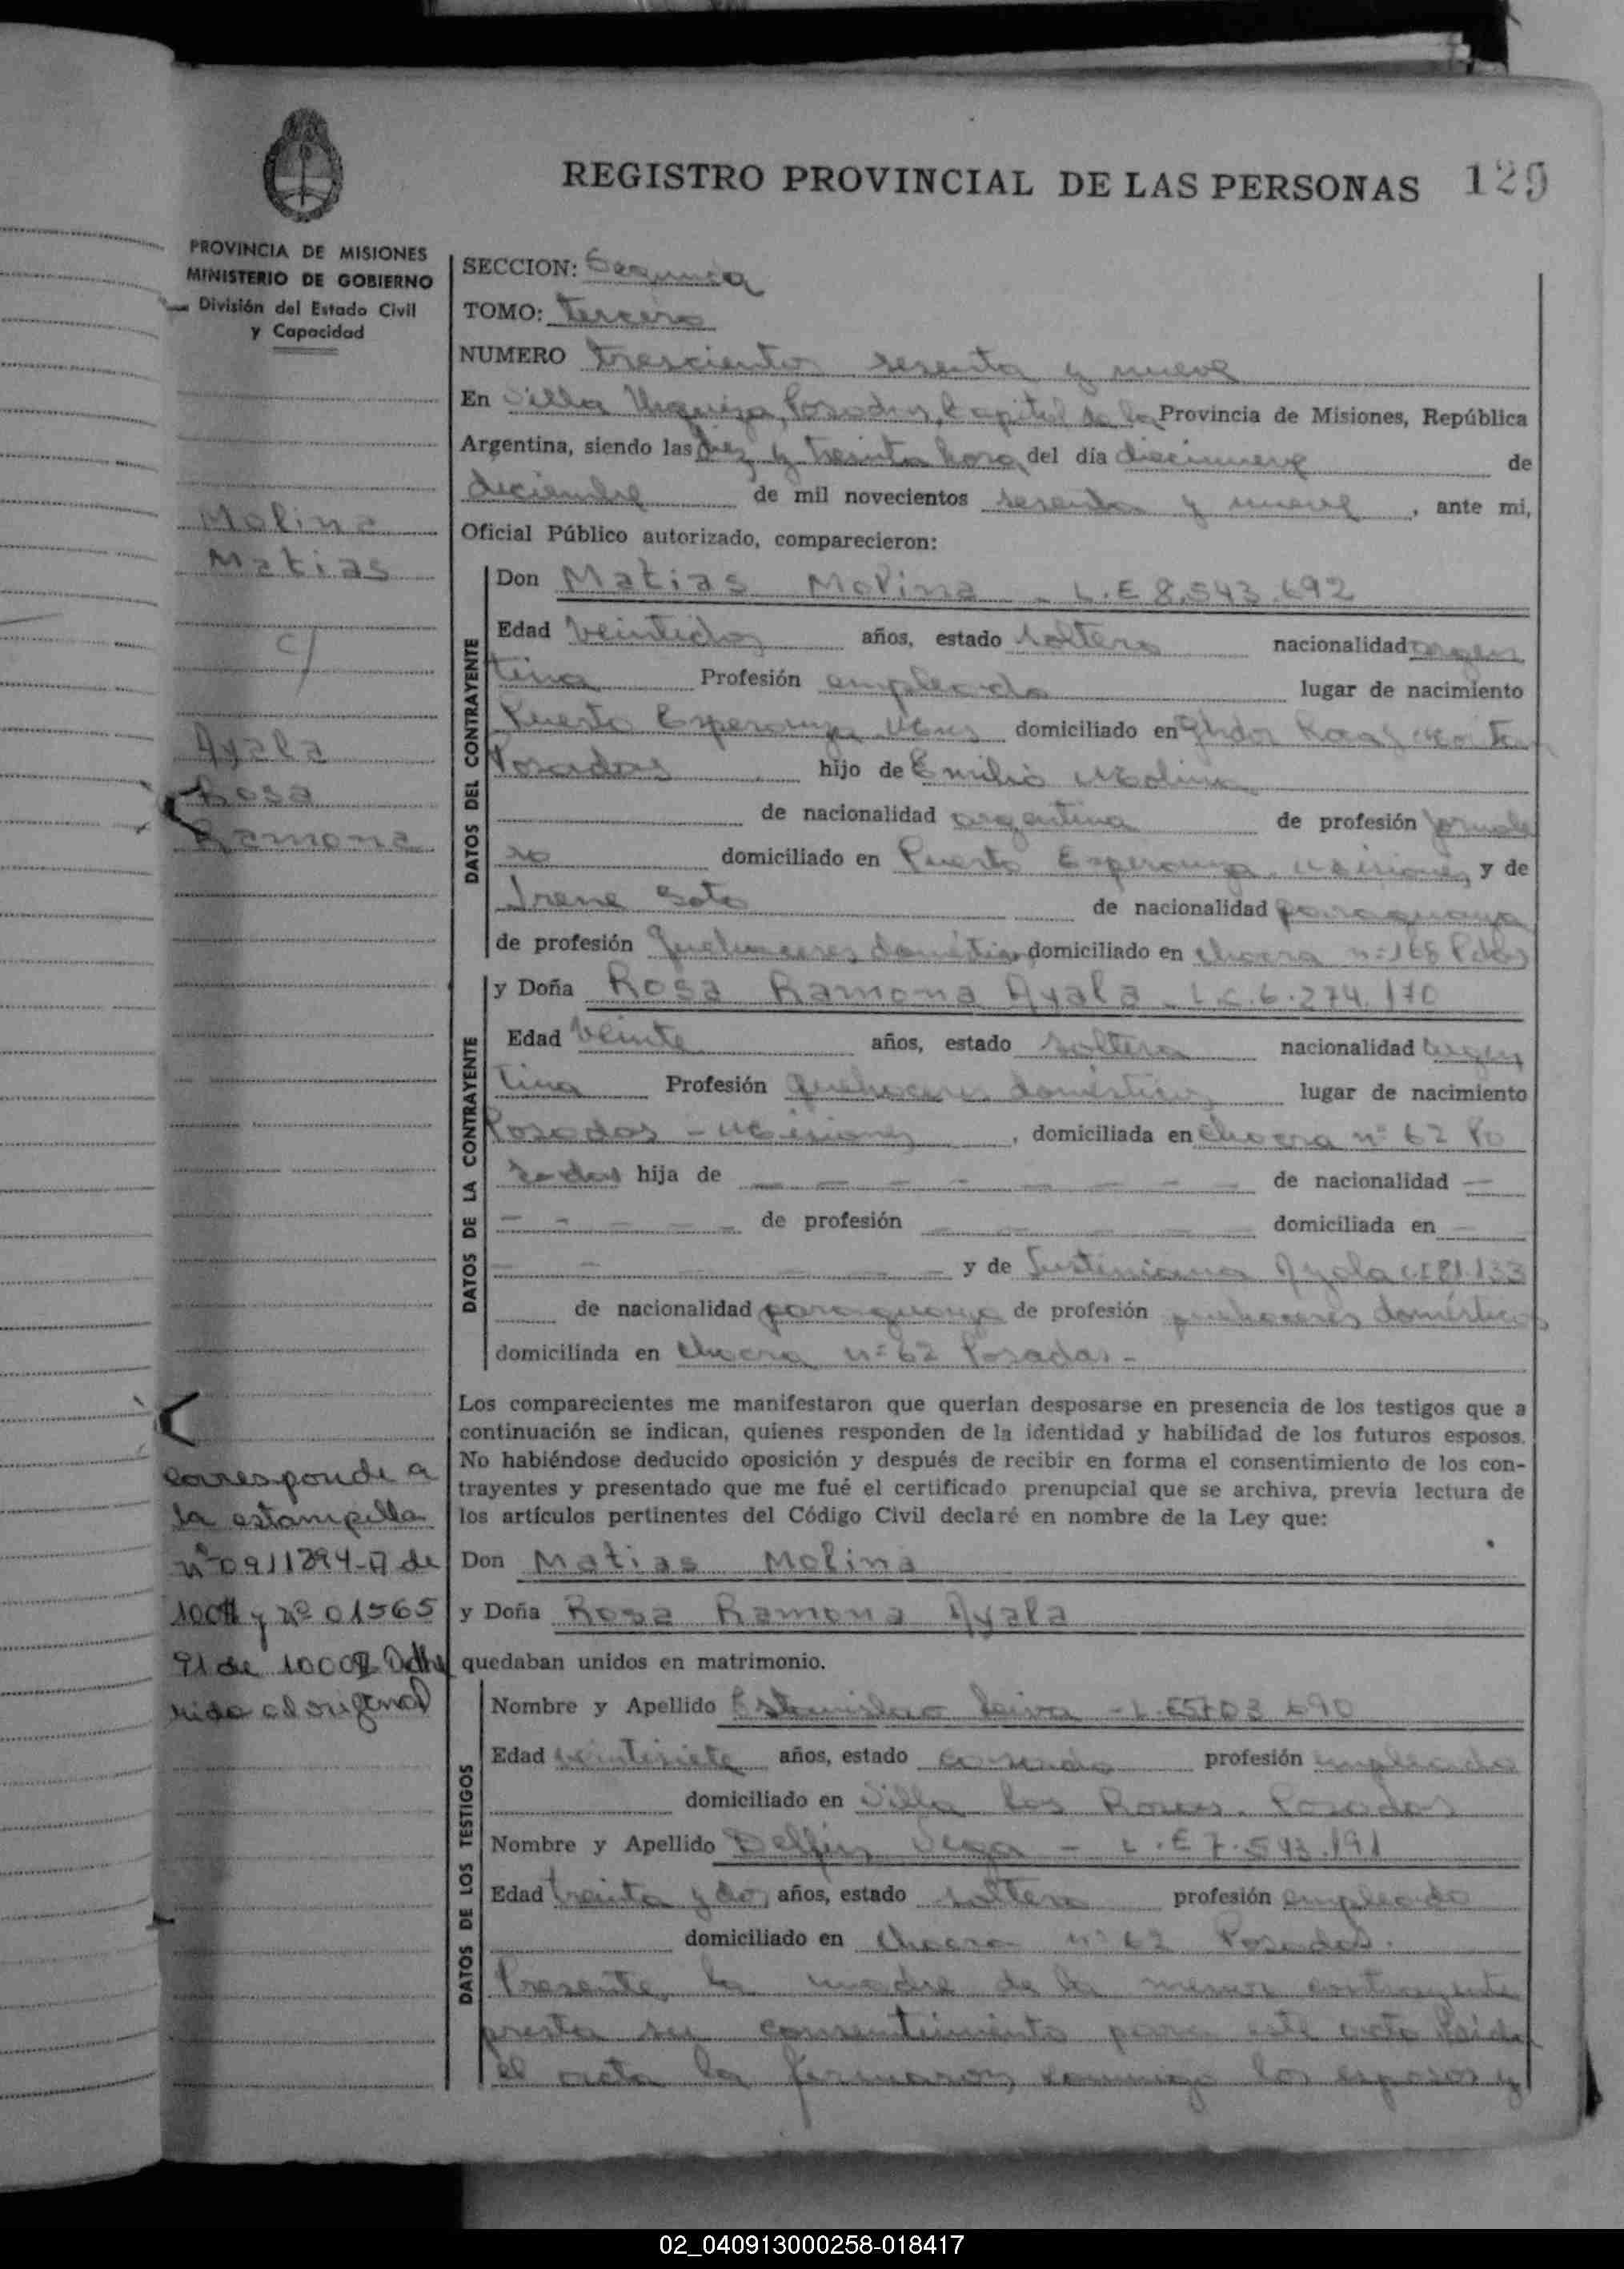 REGISTRO PROVINCIAL DE LAS PERSONAS 129
PROVINCIA DE MISIONES
MINISTERIO DE GOBIERNO
División del Estado Civil
y Capacidad
Molina
Matias
c/
Ayala
Rosa
Ramona
corresponde a
la estampilla
nº 0911894-A de
100 y nº 01565
91 de 1000 Adhe
rida al original
SECCION: Segunda
TOMO: tercero
NUMERO trescientos sesenta y nueve
En Villa Urquiza, Posadas, Capital de la Provincia de Misiones, República
Argentina, siendo las diez y treinta hora del día diecinueve de
diciembre de mil novecientos sesenta y nueve, ante mi,
Oficial Público autorizado, comparecieron:
DATOS DEL CONTRAYENTE
Don Matias Molina - L.E 8.543.692
Edad veintidos años, estado soltero nacionalidad argen
tina Profesión empleado lugar de nacimiento
Puerto Esperanza Mnes domiciliado en
Posadas hijo de Emilio Molina
de nacionalidad argentina de profesión jornale
ro domiciliado en Puerto Esperanza, Misiones y de
Irene Soto de nacionalidad paraguaya
de profesión quehaceres domésticos domiciliado en Chacra nº 168 Pdas
DATOS DE LA CONTRAYENTE
y Doña Rosa Ramona Ayala - L.C. 6.274.170
Edad veinte años, estado soltera nacionalidad argen
tina Profesión quehaceres domésticos lugar de nacimiento
Posadas - Misiones, domiciliada en Chacra nº 62 Po
sadas hija de — — — — — — — de nacionalidad —
— — — — — de profesión — — — — — domiciliada en —
— — — — — y de Justiniana Ayala 81.133
de nacionalidad paraguaya de profesión quehaceres domésticos
domiciliada en Chacra nº 62 Posadas -
Los comparecientes me manifestaron que querían desposarse en presencia de los testigos que a
continuación se indican, quienes responden de la identidad y habilidad de los futuros esposos.
No habiéndose deducido oposición y después de recibir en forma el consentimiento de los con-
trayentes y presentado que me fué el certificado prenupcial que se archiva, previa lectura de
los artículos pertinentes del Código Civil declaré en nombre de la Ley que:
Don Matias Molina
y Doña Rosa Ramona Ayala
quedaban unidos en matrimonio.
DATOS DE LOS TESTIGOS
Nombre y Apellido Estanislao Leiva - L.E 690
Edad veintisiete años, estado casado profesión empleado
domiciliado en Villa Las Rosas. Posadas
Nombre y Apellido Delfin Vega - L.E 7.543.191
Edad treinta y dos años, estado soltero profesión empleado
domiciliado en Chacra nº 62 Posadas.
Presente la madre de la menor contrayente
presta su consentimiento para este acto Leida
el acta la firmaron conmigo los esposos y
02_040913000258-018417